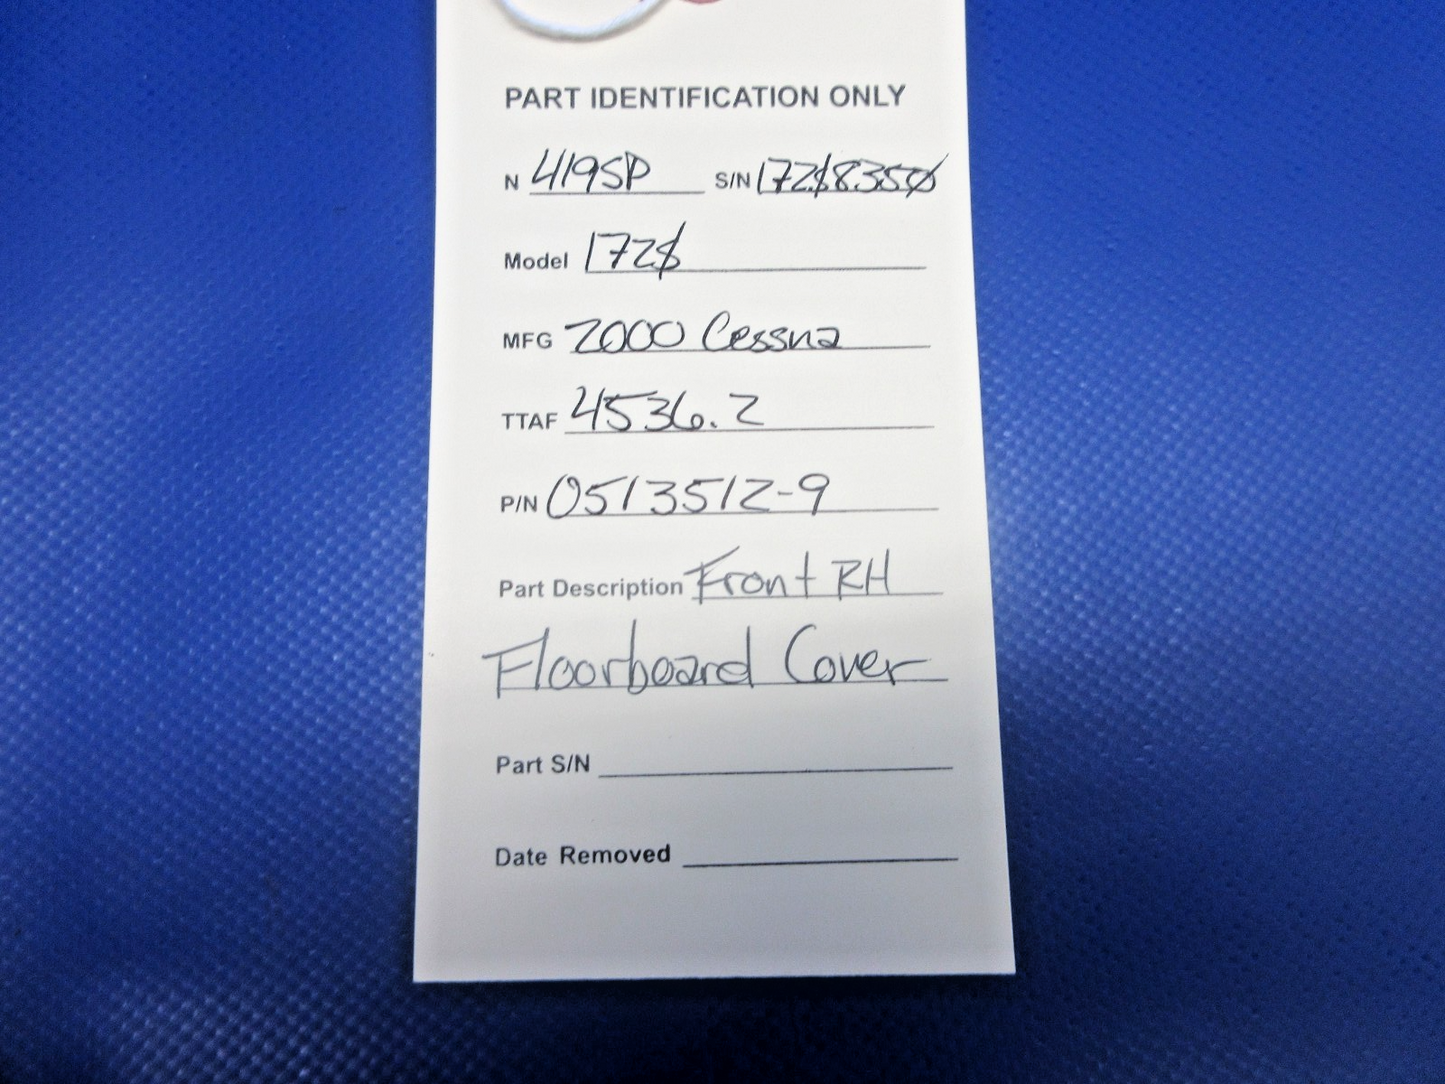 PART IDENTIFICATION ONLY
N 419SP S/N 172S8350
Model 172S
MFG 2000 Cessna
TTAF 4536.2
P/N 0513512-9
Part Description Front RH
Floorboard Cover
Part S/N
Date Removed